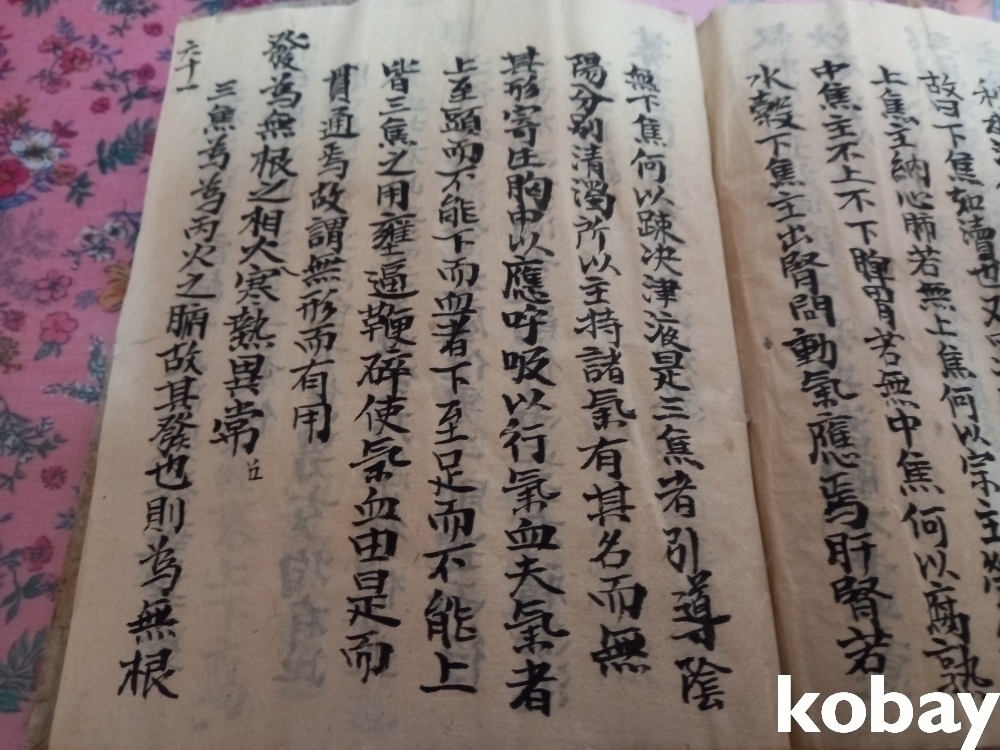 故曰下焦如瀆也又
上焦主納心肺若無上焦何以宗主
中焦主不上不下脾胃若無中焦何以腐熟
水穀下焦主出腎間動氣應焉肝腎若
無下焦何以踈决津液是三焦者引導陰
陽分别清濁所以主持諸氣有其名而無
其形寄在胸中以應呼吸以行氣血夫氣者
上至頭而不能下而血者下至足而不能上
皆三焦之用壅逼鞕碎使氣血由是而
貫通焉故謂無形而有用
發為無根之相火寒熱異常
三焦為為丙火之腑故其發也則為無根
六十一
kobay